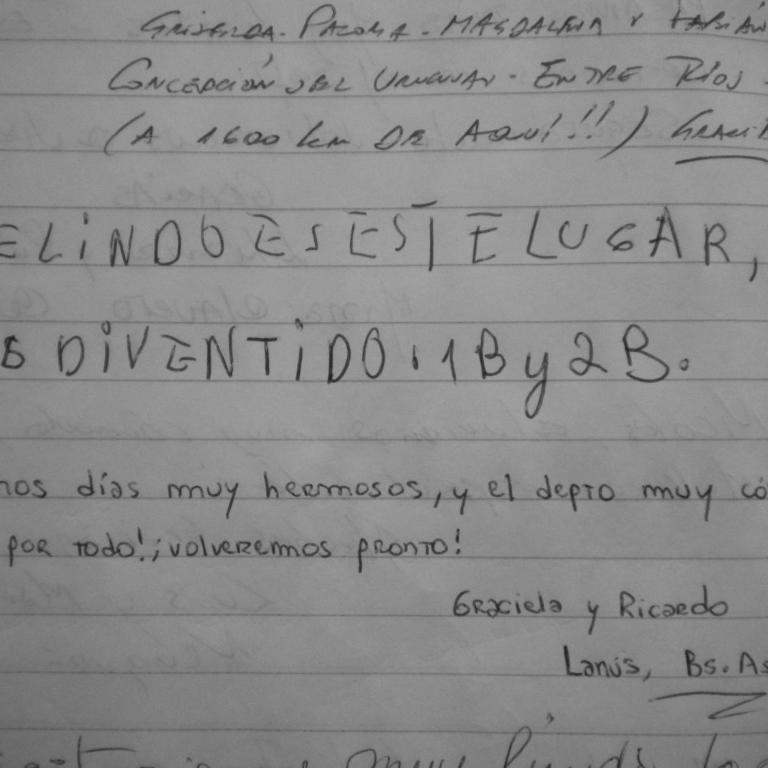 GRISELDA - PALOMA - MAGDALENA Y FABIÁN
CONCEPCIÓN DEL URUGUAY - ENTRE RÍOS
(A 1600 km DE AQUÍ!!!)
E LiNDO ES ESTE LUGAR,
DiVENTiDO. 1B y 2B.
nos días muy hermosos, y el depto muy có
por todo! ¡volveremos pronto!
Graciela y Ricardo
Lanús, Bs. As
muy lindo